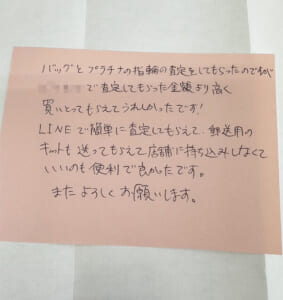 バッグとプラチナの指輪の査定をしてもらったのですが
で査定してもらった金額より高く
買いとってもらえてうれしかったです!
LINEで簡単に査定してもらえて、郵送用の
キットも送ってもらえて店舗に持ち込みしなくて
いいのも便利で良かったです。
またよろしくお願いします。